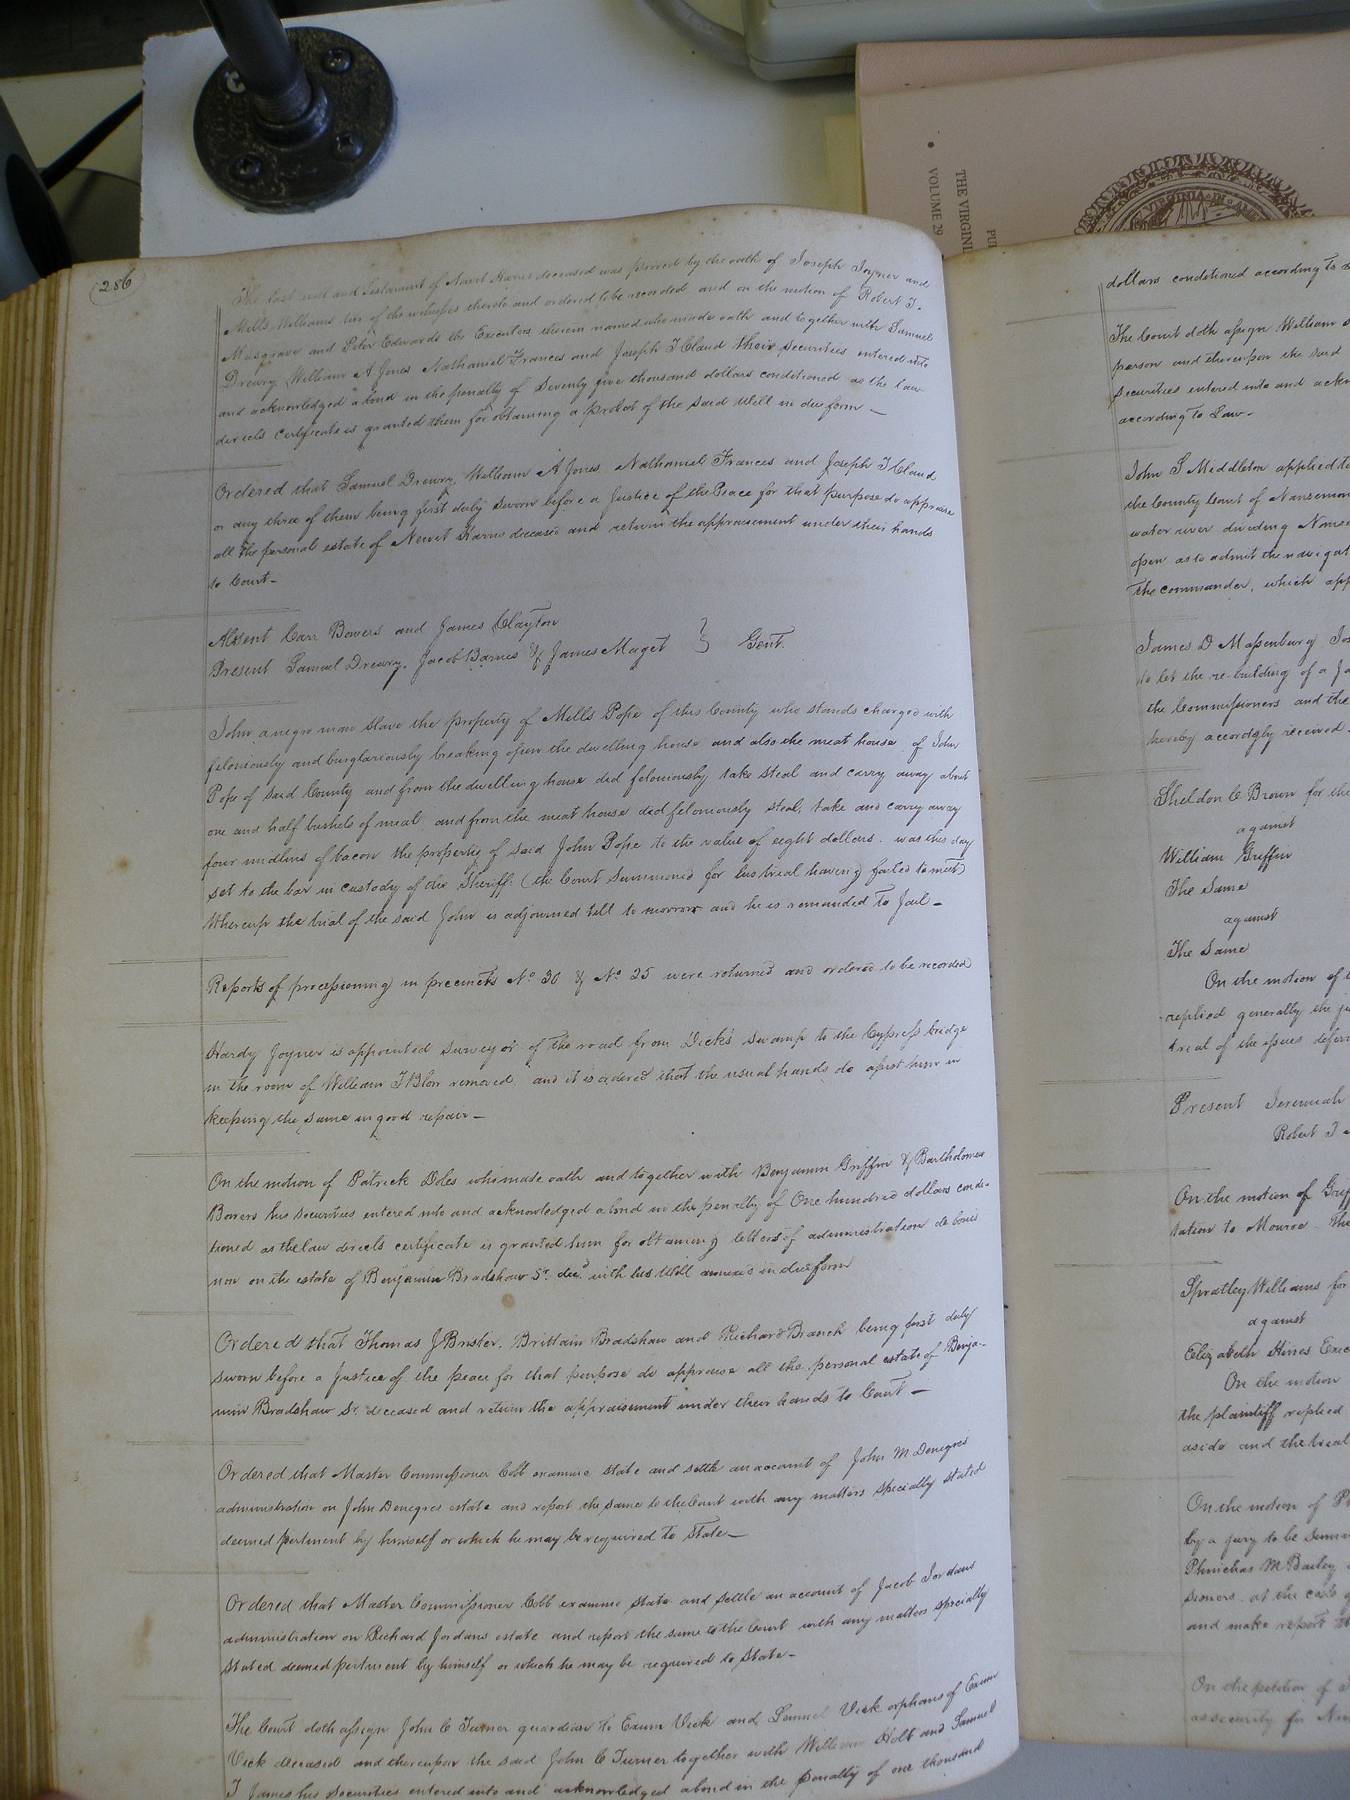 286
The last will and testament of Newit Harris deceased was proved by the oath of Joseph Joyner and
Mills Williams two of the witnesses thereto and ordered to be recorded and on the motion of Robert T.
Musgrave and Peter Edwards the Executors therein named who made oath and together with Samuel
Drewry William A Jones Nathaniel Frances and Joseph T Claud their securities entered into
and acknowledged a bond in the penalty of Seventy five thousand dollars conditioned as the law
directs certificate is granted them for obtaining a probat of the said Will in due form —
Ordered that Samuel Drewry, William A Jones, Nathaniel Frances and Joseph T Claud
or any three of them being first duly sworn before a Justice of the Peace for that purpose do appraise
all the personal estate of Newit Harris deceased and return the appraisement under their hands
to Court —
Absent Carr Bowers and James Clayton
Present Samuel Drewry, Jacob Barnes & James Maget } Gent.
John a negro man slave the property of Mills Pope of this County who stands charged with
feloniously and burglariously breaking open the dwelling house and also the meat house of John
Pope of said County and from the dwelling house did feloniously take steal and carry away about
one and half bushels of meal and from the meat house did feloniously steal, take and carry away
four midlins of bacon the property of said John Pope to the value of eight dollars. was this day
set to the bar in custody of the Sheriff. (the Court Summoned for his trial having failed to meet)
Whereup the trial of the said John is adjourned till to morrow and he is remanded to Jail —
Reports of processioning in precincts No 30 & No 25 were returned and ordered to be recorded
Hardy Joyner is appointed surveyor of the road from Dick's swamp to the Cypress bridge
in the room of William T Blow removed, and it is ordered that the usual hands do assist him in
keeping the same in good repair —
On the motion of Patrick Doles who made oath and together with Benjamin Griffin & Bartholomew
Bowers his securities entered into and acknowledged a bond in the penalty of One hundred dollars condi-
tioned as the law directs certificate is granted him for obtaining letters of administration de bonis
non on the estate of Benjamin Bradshaw Sr. decd. with his Will annexed in due form
Ordered that Thomas J Brister, Brittain Bradshaw and Richard Branch being first duly
sworn before a Justice of the peace for that purpose do appraise all the personal estate of Benja-
min Bradshaw Sr. deceased and return the appraisement under their hands to Court —
Ordered that Master Commissioner Cobb examine state and settle an account of John M Denegres
administration on John Denegres estate and report the same to the Court with any matters specially stated
deemed pertinent by himself or which he may be required to State —
Ordered that Master Commissioner Cobb examine state and settle an account of Jacob Jordans
administration on Richard Jordans estate and report the same to the Court with any matters specially
stated deemed pertinent by himself or which he may be required to State —
The Court doth assign John C Turner guardian to Exum Vick and Lemuel Vick orphans of Exum
Vick deceased and thereupon the said John C Turner together with William Holt and Samuel
T James his securities entered into and acknowledged a bond in the penalty of one thousand
dollars conditioned according to
The Court doth assign William
person and thereupon the said
securities entered into and
according to Law —
John S Middleton applied
the County Court of
water river dividing
open as to admit the
the commander, which
James D Massenburg
to let the re-building of a
the Commissioners and the
hereby accordgly received
Sheldon C Brown for the
against
William Griffin
The Same
against
The Same
On the motion of
replied generally the
trial of the issues
Present Jeremiah
Robert T
On the motion of
tation to Monroe
Spratley Williams for
against
Elizabeth Hines
On the motion
the plaintiff replied
aside and the trial
On the motion of
by a jury to be
Phinehas M Bailey
sioners at the
and make report
On the petition of
as security for
THE VIRGINI
VOLUME 29
PU
VIRGINIA IN